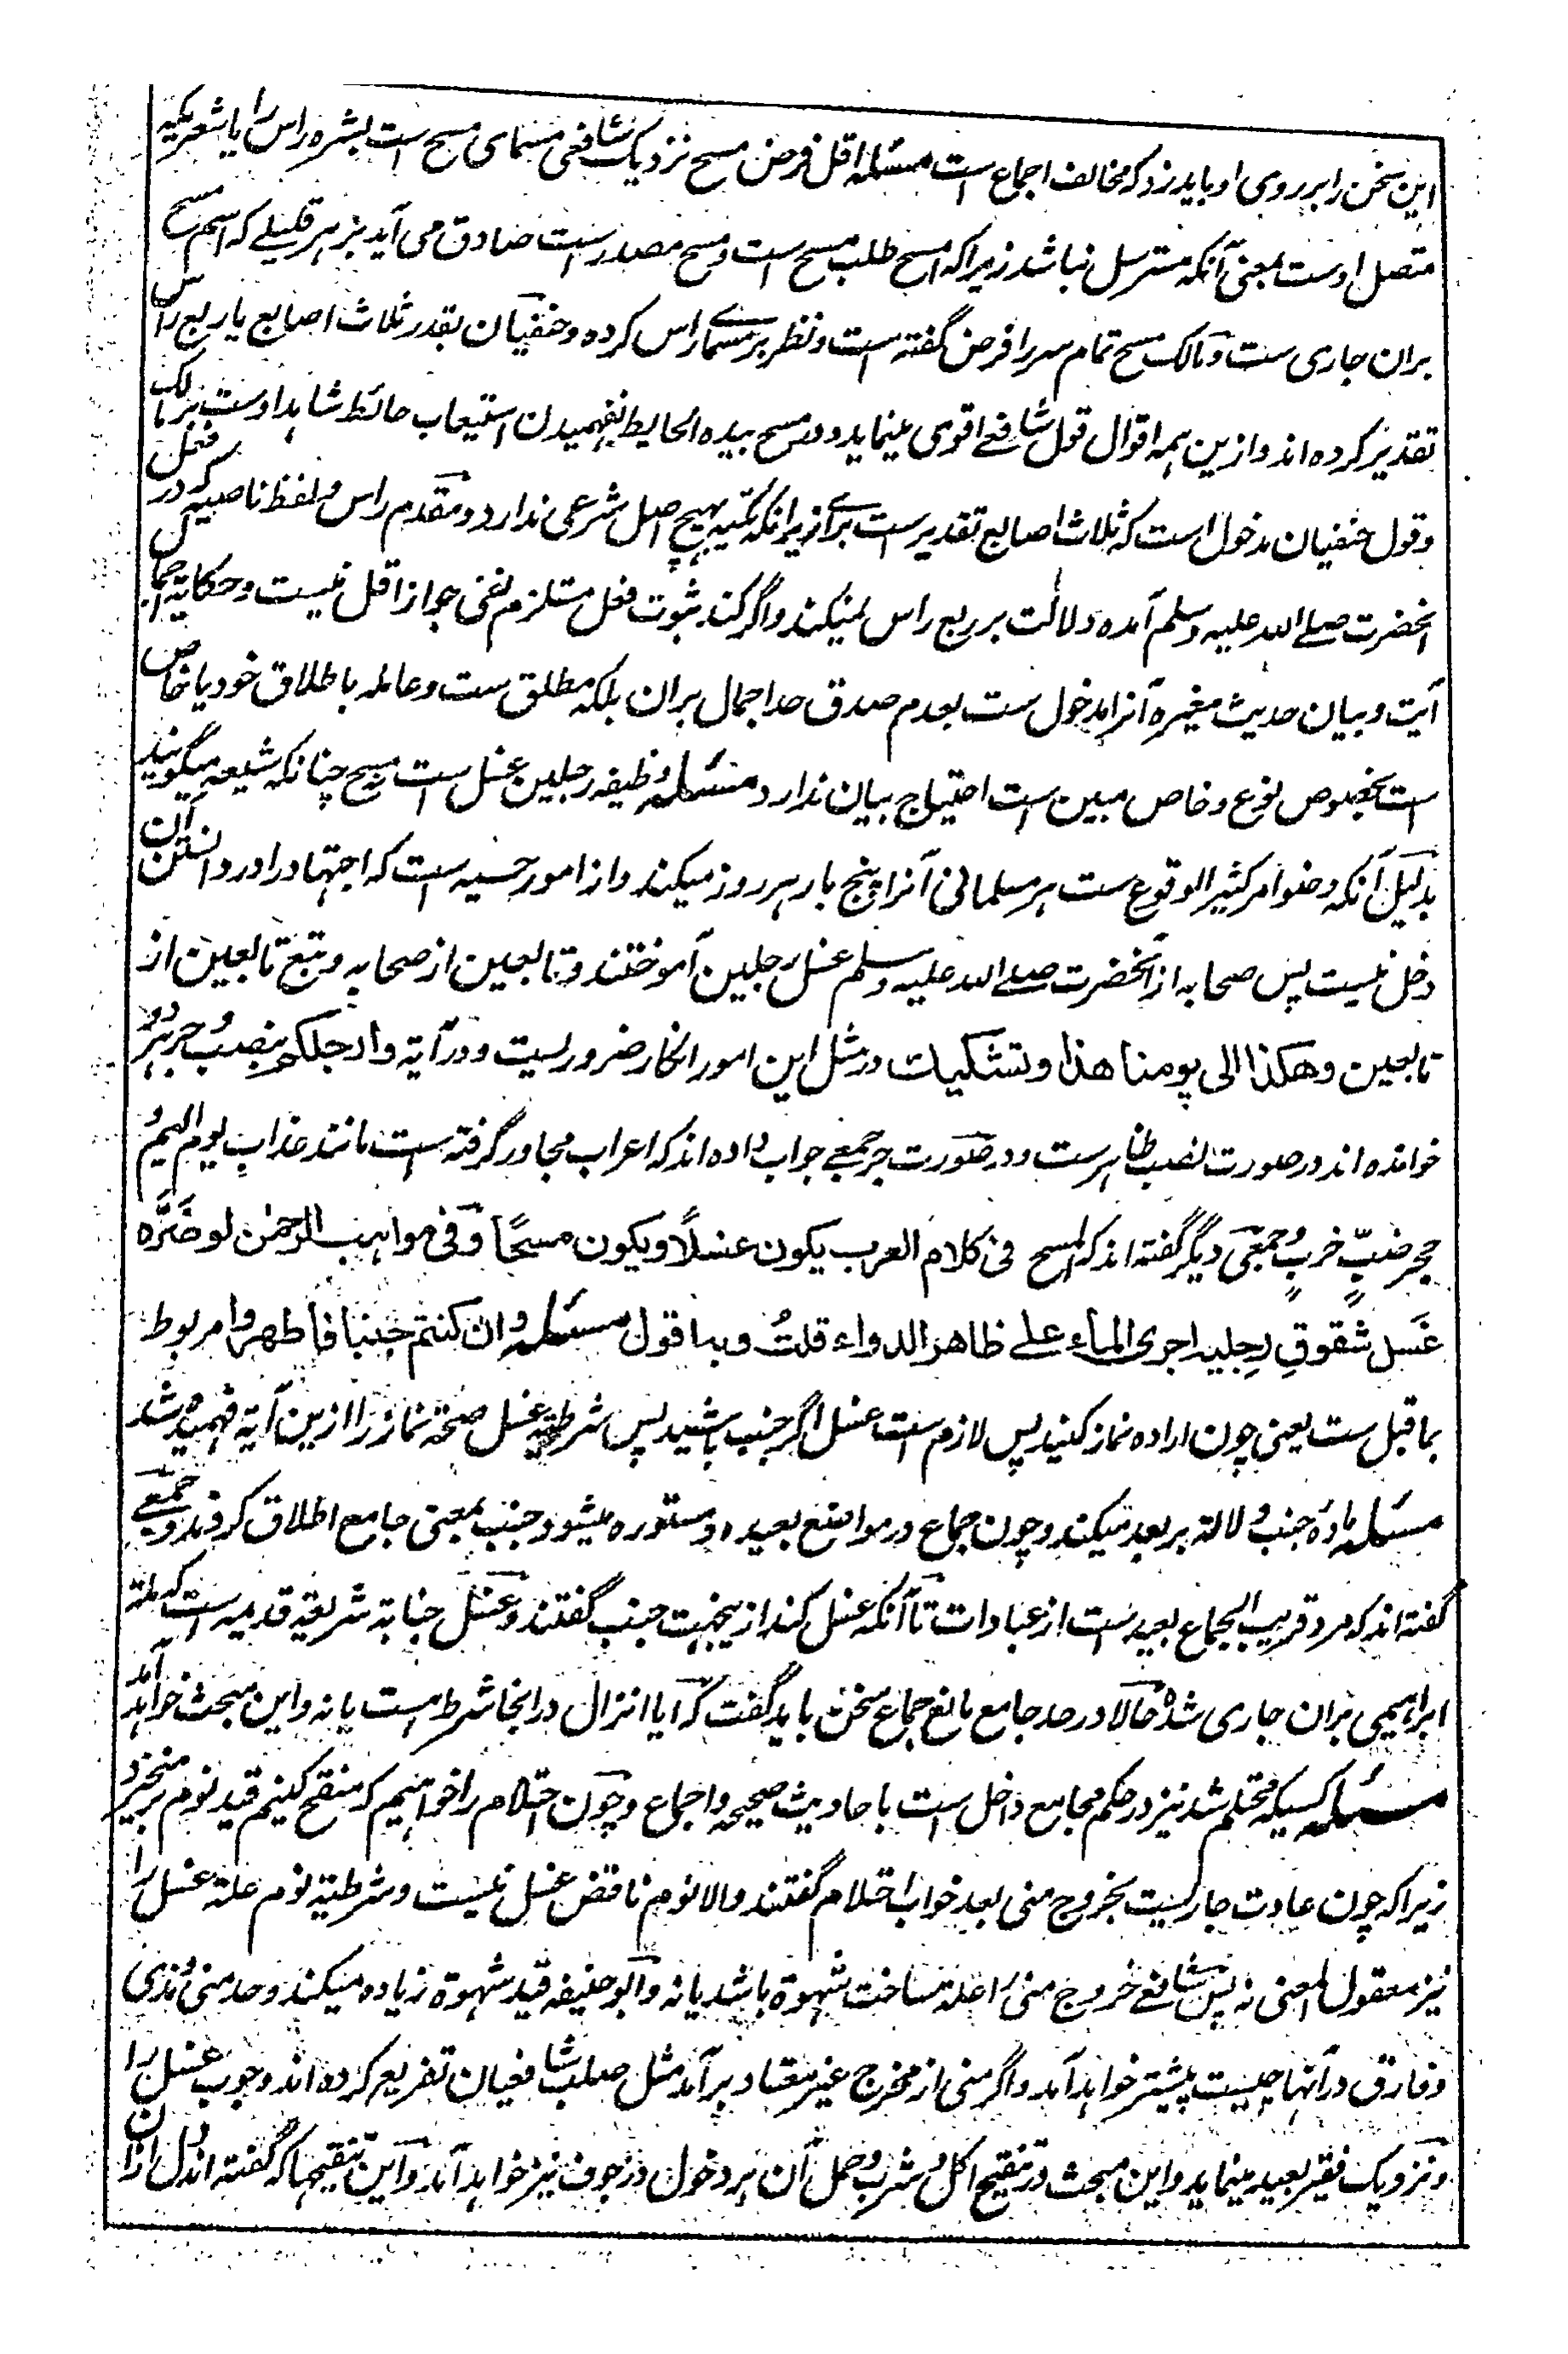 این سخن را بر روی او باید زد که مخالف اجماع است مسئله اقل فرض مسح نزدیک شافعی مسمای مسح است بشره راس را یا شعریکه
متصل اوست بمعنی آنکه مسترسل نباشد زیرا که امسح طلب مسح است و مسح مصدر است صادق می آید بر هر قلیلے که اسم مسح
بران جاری ست و مالک مسح تمام سر را فرض گفته است و نظر بر مسمای راس کرده و حنفیان بقدر ثلاث اصابع یا ربع راس
تقدیر کرده اند و ازین همه اقوال قول شافعے اقوی مینماید و در مسح بیده الحایط نفهمیدن استیعاب حائط شاهد اوست بر مالک
و قول حنفیان مدخول است که ثلاث اصابع تقدیر ست برای زیرانکه هیچ اصل شرعی ندارد و مقدم راس و لفظ ناصیه که در فعل
آنحضرت صلے الله علیه وسلم آمده دلالت بر ربع راس نمیکند و اگر کند ثبوت فعل مستلزم نفی جواز اقل نیست و حکایة اجمال
آیت و بیان حدیث مغیره آنرا مدخول ست بعدم صدق حد اجمال بران بلکه مطلق ست و عامله باطلاق خود یا خاص
است بخصوص نوع و خاص مبین است احتیاج بیان ندارد مسئله وظیفه رجلین غسل ست نه مسح چنانکه شیعه میگویند
بدلیل آنکه وضو امر کثیر الوقوع ست هر مسلمانی آنرا پنج بار هر روز میکند و از امور حسیه است که اجتهاد را در دانستن آن
دخل نیست پس صحابه از آنحضرت صلے الله علیه وسلم غسل رجلین آموختند و تابعین از صحابه و تبع تابعین از
تابعین وهکذا الی یومنا هذا و تشکیکات در مثل این امور انکار ضروریست و در آیة وارجلکم بنصب و جر هر دو
خوانده اند در صورت نصب ظاهر ست و در صورت جر جمعے جواب داده اند که اعراب مجاور گرفته است مانند عذاب یوم الیم و
حجر ضبٍّ خربٍ و جمعی دیگر گفته اند که المسح فی کلام العرب یکون غسلاً ویکون مسحًا و فی مواهب الرحمن لو ضَرَّه
غَسل شقوقِ رِجلیه اجری الماء علے ظاهر الدواء قلتُ وبه اقول مسئله وان کنتم جنبا فاطهروا مربوط
بماقبل ست یعنی چون اراده نماز کنید پس لازم است غسل اگر جنب باشید پس شرطیة غسل صحة نماز را ازین آیة فهمیده شد
مسئله ماده جنب دلالة بر بعد میکند و چون جماع در مواضع بعیده و مستوره میشود جنب بمعنی جامع اطلاق کردند و جمعے
گفته اند که مرد قریب الجماع بعید ست از عبادات تا آنکه غسل کند ازینجهت جنب گفتند و غسل جنابة شریعة قدیمه است که ملة
ابراهیمی بران جاری شده حالا در حد جامع مانع جماع سخن باید گفت که آیا انزال در اینجا شرط است یا نه و این مبحث خواهد آمد
مسئله کسیکه محتلم شد نیز در حکم مجامع داخل ست باحادیث صحیحه و اجماع و چون احتلام را خواهیم که منقح کنیم قید نوم برمیخیزد
زیرا که چون عادت جاریست بخروج منی بعد خواب احتلام گفتند و الا نوم ناقض غسل نیست و شرطیة نوم علة غسل را
نیز معقول المعنی نه پس شافعے خروج منی را علة ساخت شهوة باشد یا نه و ابو حنیفه قید شهوة زیاده میکند و حد منی و مذی
و فارق در آنها چیست پیشتر خواهد آمد و اگر منی از مخرج غیر معتاد بر آمد مثل صلب شافعیان تفریع کرده اند وجوب غسل را
و نزدیک فقیر بعید مینماید و این مبحث در تنقیح اکل و شرب و حمل آن بر دخول در جوف نیز خواهد آمد و این تنقیحها که گفته اند دل ازان